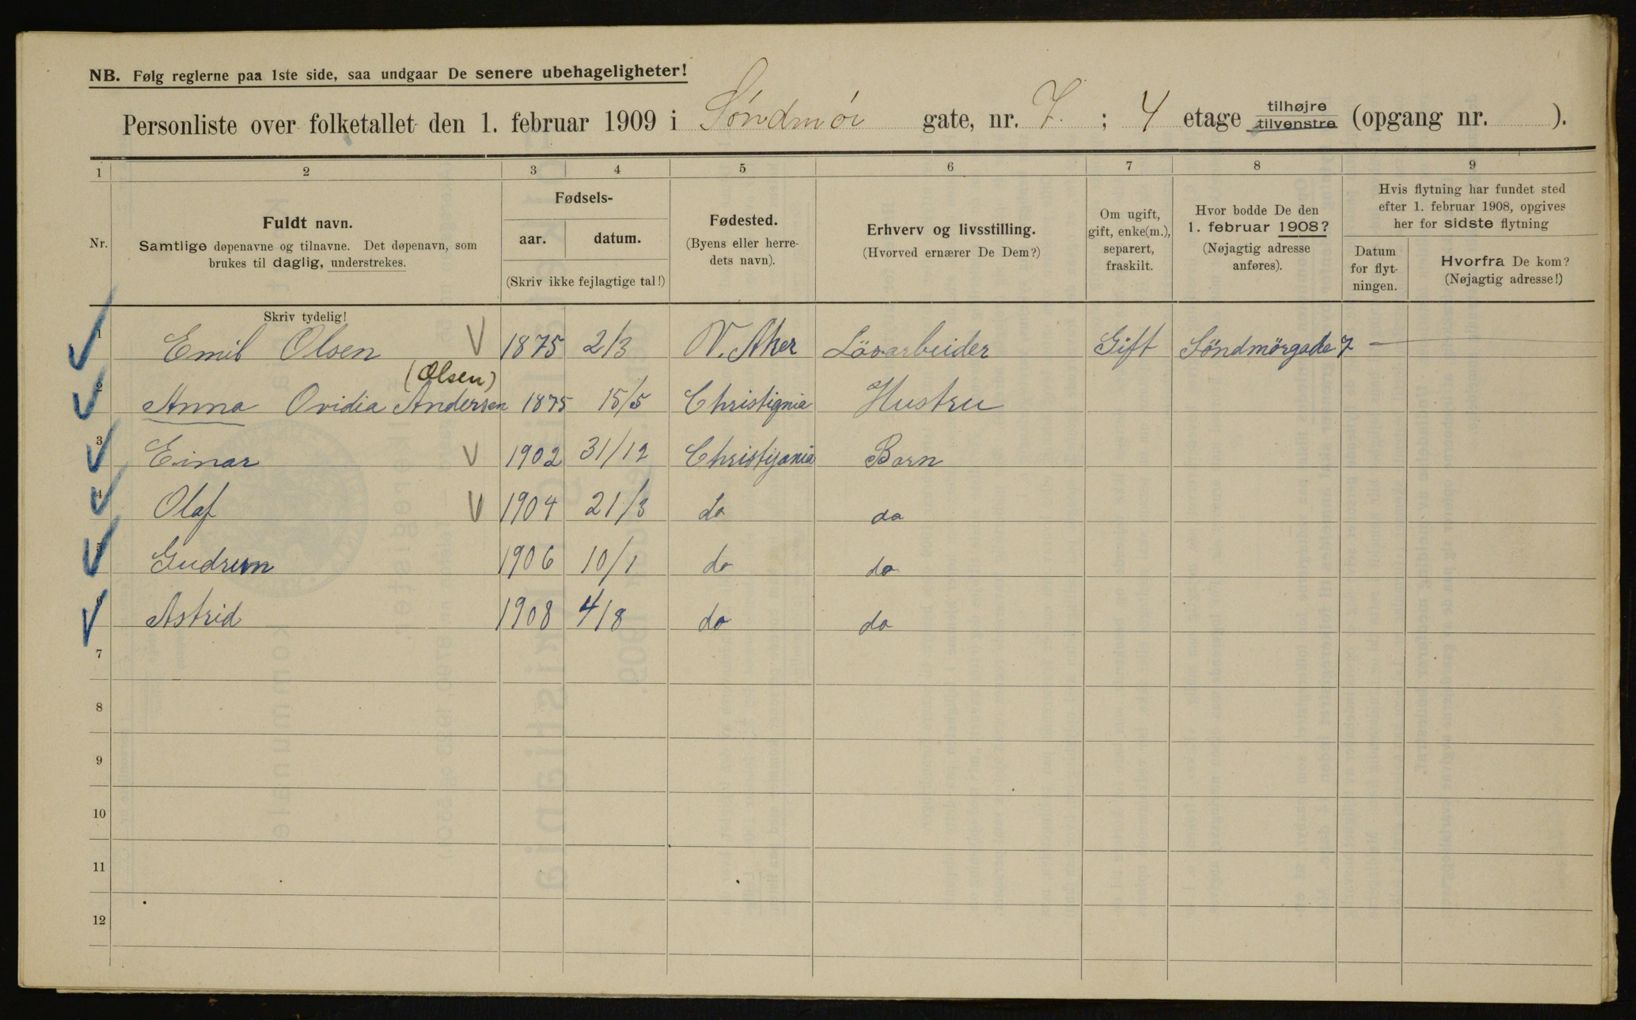 NB. Følg reglerne paa 1ste side, saa undgaar De senere ubehageligheter!
Personliste over folketallet den 1. februar 1909 i Söndmöi gate, nr. 7. ; 4 etage tilhøjre tilvenstre (opgang nr. ).
1 2 3 4 5 6 7 8 9
Nr.
Fuldt navn.
Samtlige døpenavne og tilnavne. Det døpenavn, som
brukes til daglig, understrekes.
Fødsels-
aar. datum.
(Skriv ikke fejlagtige tal!)
Fødested.
(Byens eller herre-
dets navn).
Erhverv og livsstilling.
(Hvorved ernærer De Dem?)
Om ugift,
gift, enke(m.),
separert,
fraskilt.
Hvor bodde De den
1. februar 1908?
(Nøjagtig adresse
anføres).
Hvis flytning har fundet sted
efter 1. februar 1908, opgives
her for sidste flytning
Datum
for flyt-
ningen.
Hvorfra De kom?
(Nøjagtig adresse!)
Skriv tydelig!
1 Emil Olsen V 1875 2/3 V. Aker Gift Söndmörgade 7 —
(Olsen)
2 Anna Ovidia Andersen 1875 15/5 Christignia Hustru
3 Einar V 1902 31/12 Christijania Barn
4 Olaf V 1904 21/3 do do
5 Gudrun 1906 10/1 do do
6 Astrid 1908 4/8 do do
7
8
9
10
11
12